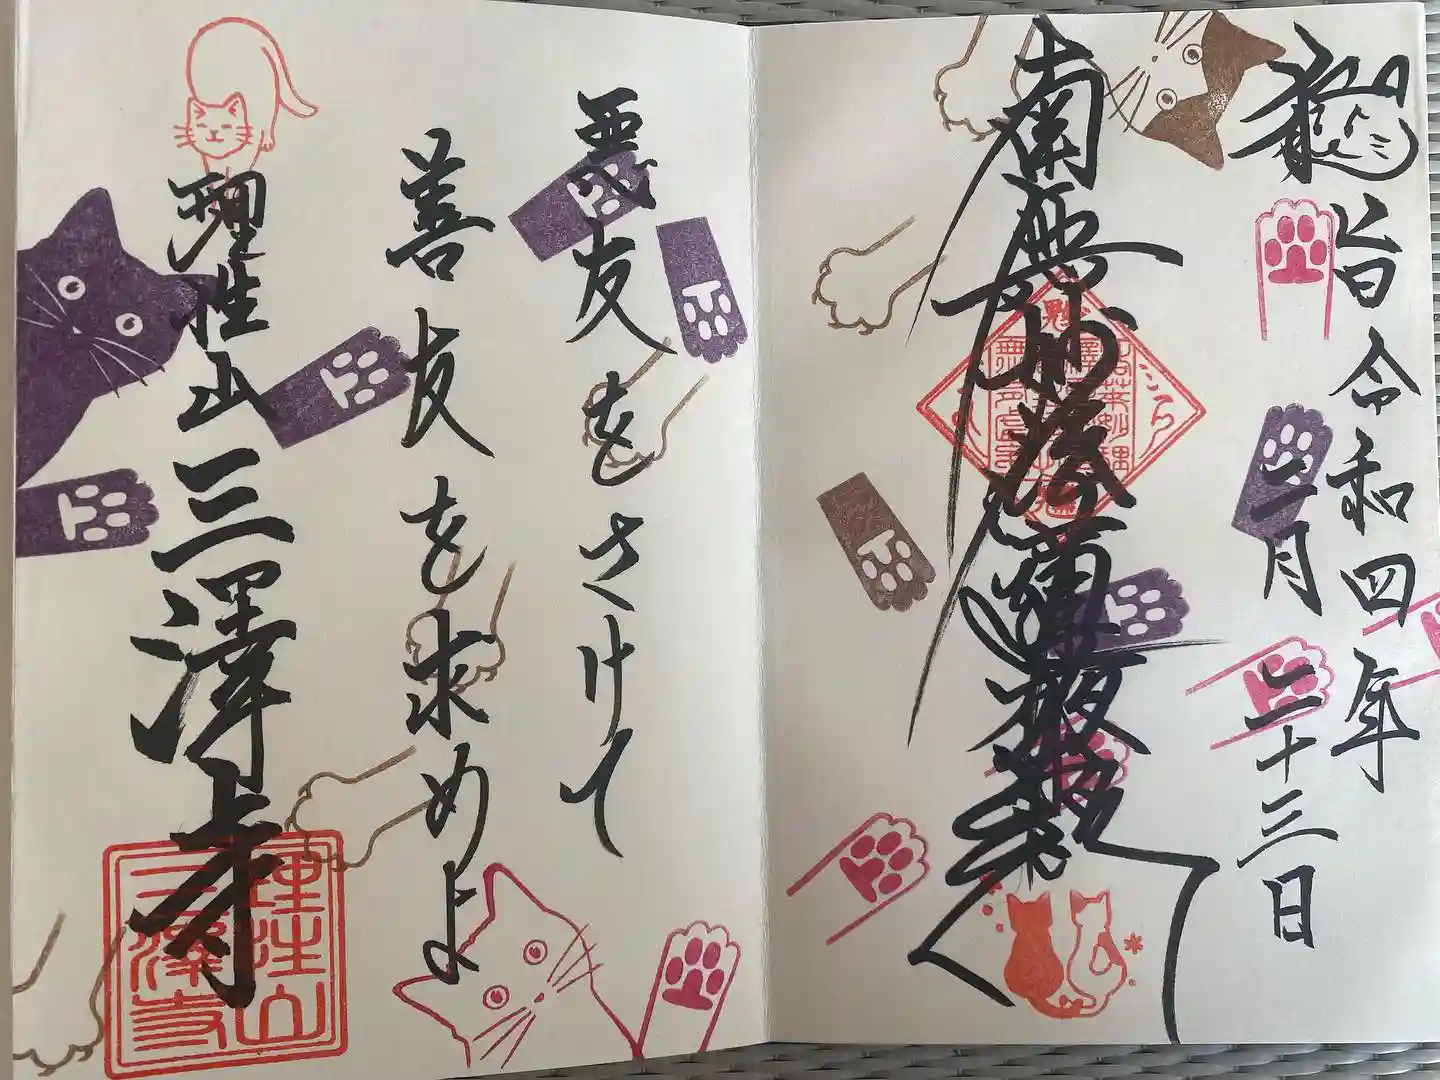 旹令和四年
二月二十三日
南無妙法蓮華経
悪友をさけて
善友を求めよ
理性山三澤寺
理性山
三澤寺